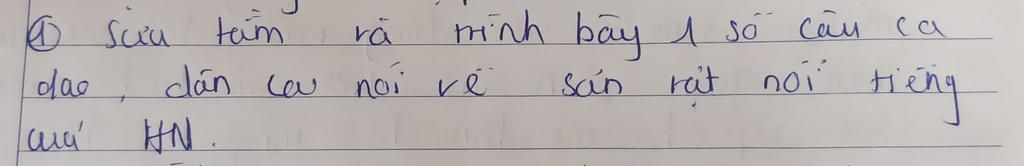 ① Sưu tầm và trình bày 1 số câu ca
dao, dân ca nói về sản vật nổi tiếng
của HN.